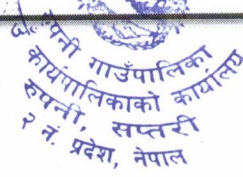 रुपनी गाउँपालिका
गाउँ कार्यपालिकाको कार्यालय
रुपनी, सप्तरी
२ नं. प्रदेश, नेपाल